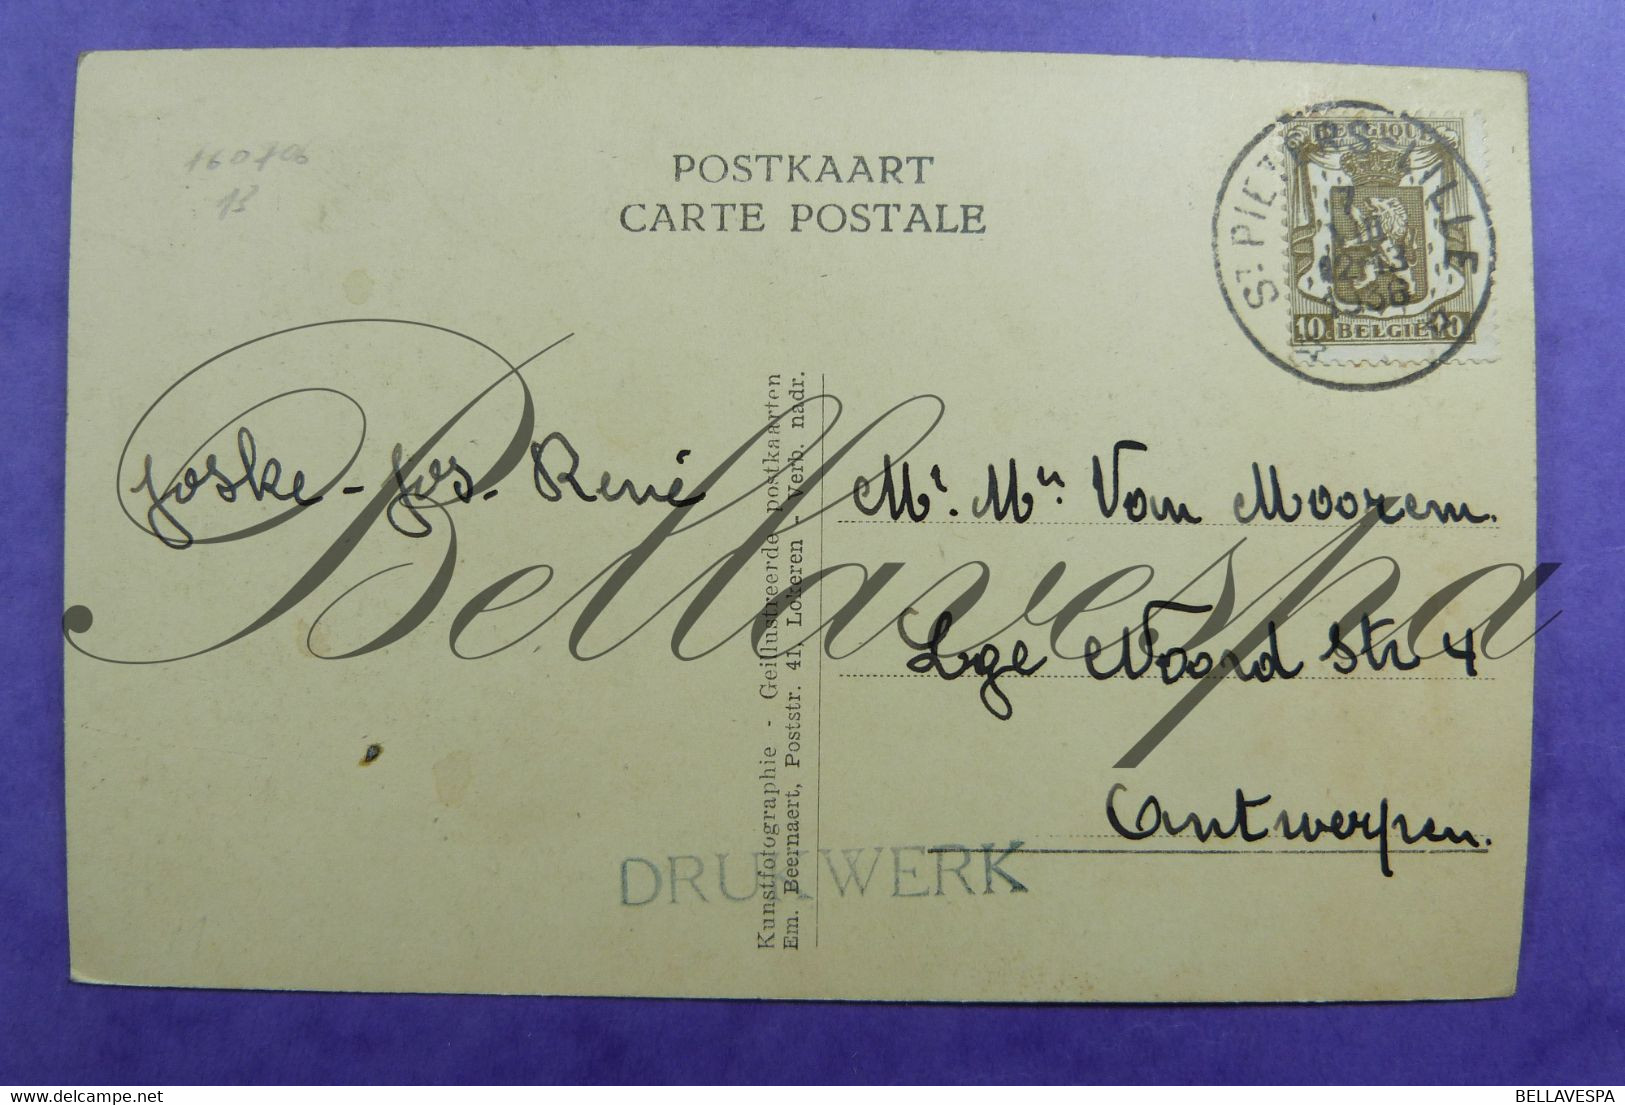 160706
13
POSTKAART
CARTE POSTALE
BELGIQUE
ST. PIETERS-LILLE
7
12-13
1936
10c BELGIË 10c
Joske - Jos - René
Mr. Mn. Van Moorem.
Lge Noord Str 4
Antwerpen.
Kunstfotographie - Geïllustreerde postkaarten
Em. Beernaert, Poststr. 41, Lokeren - Verb. nadr.
DRUKWERK
Bellavespa
BELLAVESPA